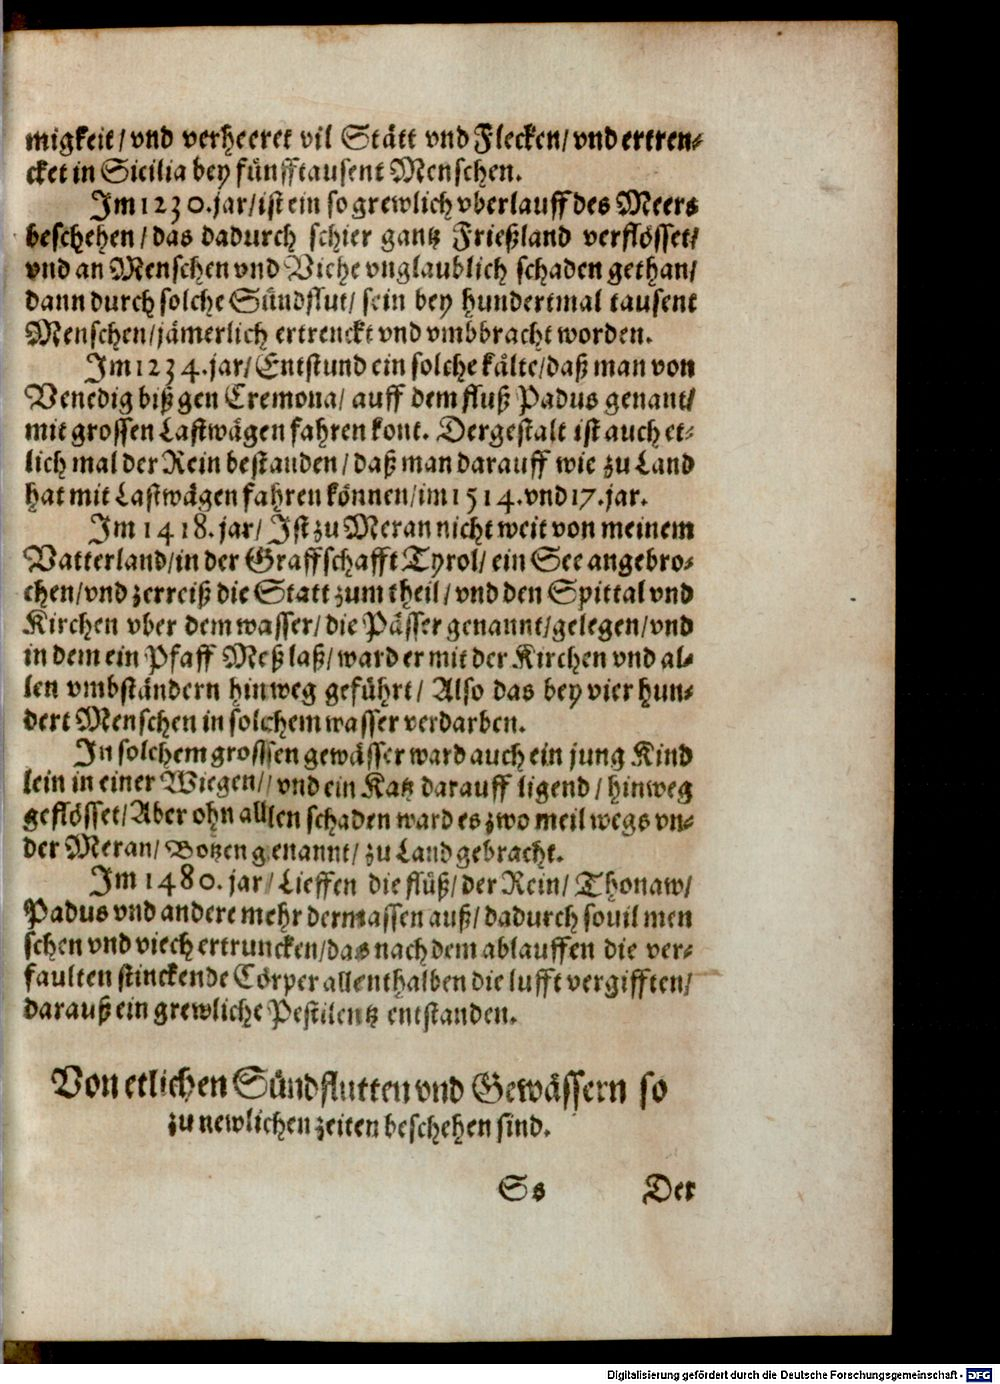 migkeit/ vnd verheeret vil Stätt vnd Flecken/ vnd ertren-
cket in Sicilia bey fünfftausent Menschen.
Im 1230. jar/ ist ein so grewlich vberlauff des Meers
beschehen/ das dadurch schier gantz Frießland verflösset/
vnd an Menschen vnd Viche vnglaublich schaden gethan/
dann durch solche Sündflut/ sein bey hundertmal tausent
Menschen/ jämerlich ertrenckt vnd vmbbracht worden.
Im 1234. jar/ Entstund ein solche kälte/ daß man von
Venedig biß gen Cremona/ auff dem fluß Padus genant/
mit grossen Lastwägen fahren kont. Dergestalt ist auch et-
lich mal der Rein bestanden/ daß man darauff wie zu Land
hat mit Lastwägen fahren können/ im 1514. vnd 17. jar.
Im 1418. jar/ Ist zu Meran nicht weit von meinem
Vatterland/ in der Graffschafft Tyrol/ ein See angebro-
chen/ vnd zerreiß die Statt zum theil/ vnd den Spittal vnd
Kirchen vber dem wasser/ die Pässer genannt/ gelegen/ vnd
in dem ein Pfaff Meß laß/ ward er mit der Kirchen vnd al-
len vmbständern hinweg geführt/ Also das bey vier hun-
dert Menschen in solchem wasser verdarben.
In solchem grosssen gewässer ward auch ein jung Kind
lein in einer Wiegen// vnd ein Katz darauff ligend/ hinweg
geflösset/ Aber ohn alllen schaden ward es zwo meil wegs vn-
der Meran/ Botzen genannt/ zu Land gebracht.
Im 1480. jar/ Lieffen die flüß/ der Rein/ Thonaw/
Padus vnd andere mehr dermassen auß/ dadurch souil men
schen vnd viech ertruncken/ das nach dem ablauffen die ver-
faulten stinckende Cörper allenthalben die lufft vergifften/
darauß ein grewliche Pestilentz entstanden.
Von etlichen Sündflutten vnd Gewässern so
zu newlichen zeiten beschehen sind.
Ss Der
Digitalisierung gefördert durch die Deutsche Forschungsgemeinschaft - DFG